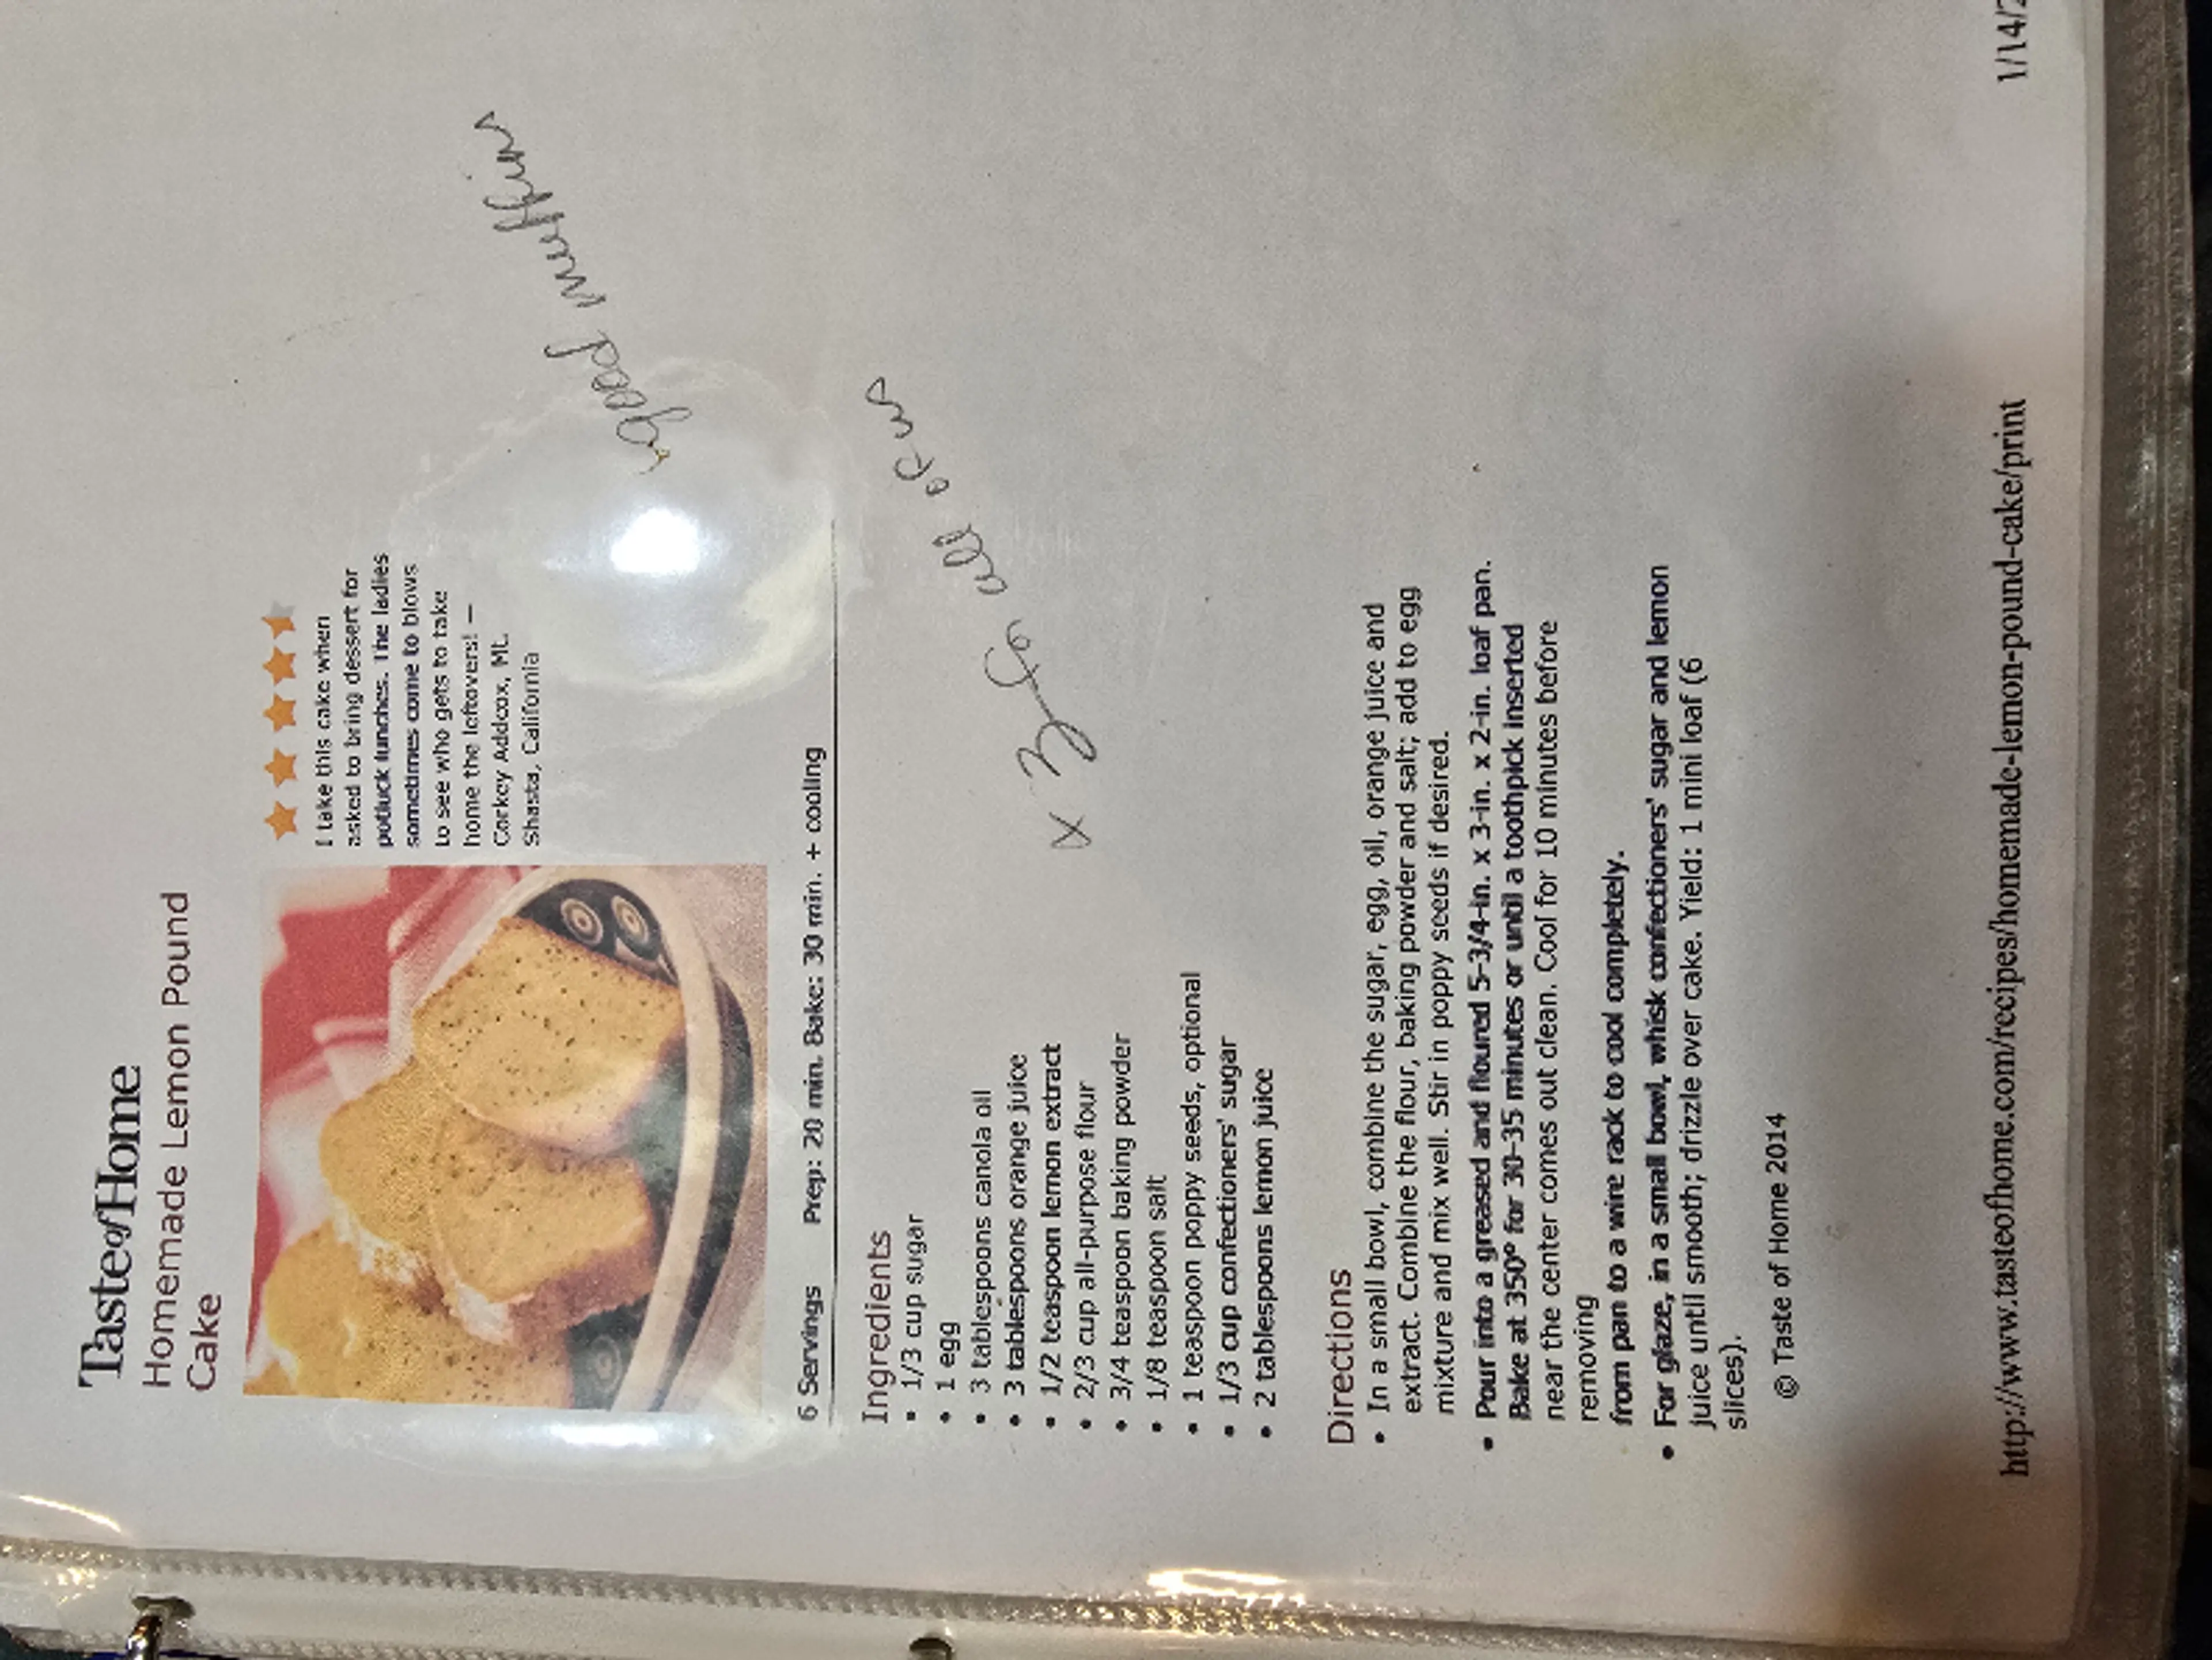 Taste of Home
Homemade Lemon Pound
Cake
I take this cake when
asked to bring dessert for
potluck lunches. The ladies
sometimes come to blows
to see who gets to take
home the leftovers! —
Corkey Addcox, Mt.
Shasta, California
good muffins
6 Servings Prep: 20 min. Bake: 30 min. + cooling
Ingredients
• 1/3 cup sugar
• 1 egg
• 3 tablespoons canola oil
• 3 tablespoons orange juice
• 1/2 teaspoon lemon extract
• 2/3 cup all-purpose flour
• 3/4 teaspoon baking powder
• 1/8 teaspoon salt
• 1 teaspoon poppy seeds, optional
• 1/3 cup confectioners' sugar
• 2 tablespoons lemon juice
x 3 fo all of us
Directions
• In a small bowl, combine the sugar, egg, oil, orange juice and
extract. Combine the flour, baking powder and salt; add to egg
mixture and mix well. Stir in poppy seeds if desired.
• Pour into a greased and floured 5-3/4-in. x 3-in. x 2-in. loaf pan.
Bake at 350° for 30-35 minutes or until a toothpick inserted
near the center comes out clean. Cool for 10 minutes before
removing
from pan to a wire rack to cool completely.
• For glaze, in a small bowl, whisk confectioners' sugar and lemon
juice until smooth; drizzle over cake. Yield: 1 mini loaf (6
slices).
© Taste of Home 2014
http://www.tasteofhome.com/recipes/homemade-lemon-pound-cake/print 1/14/2